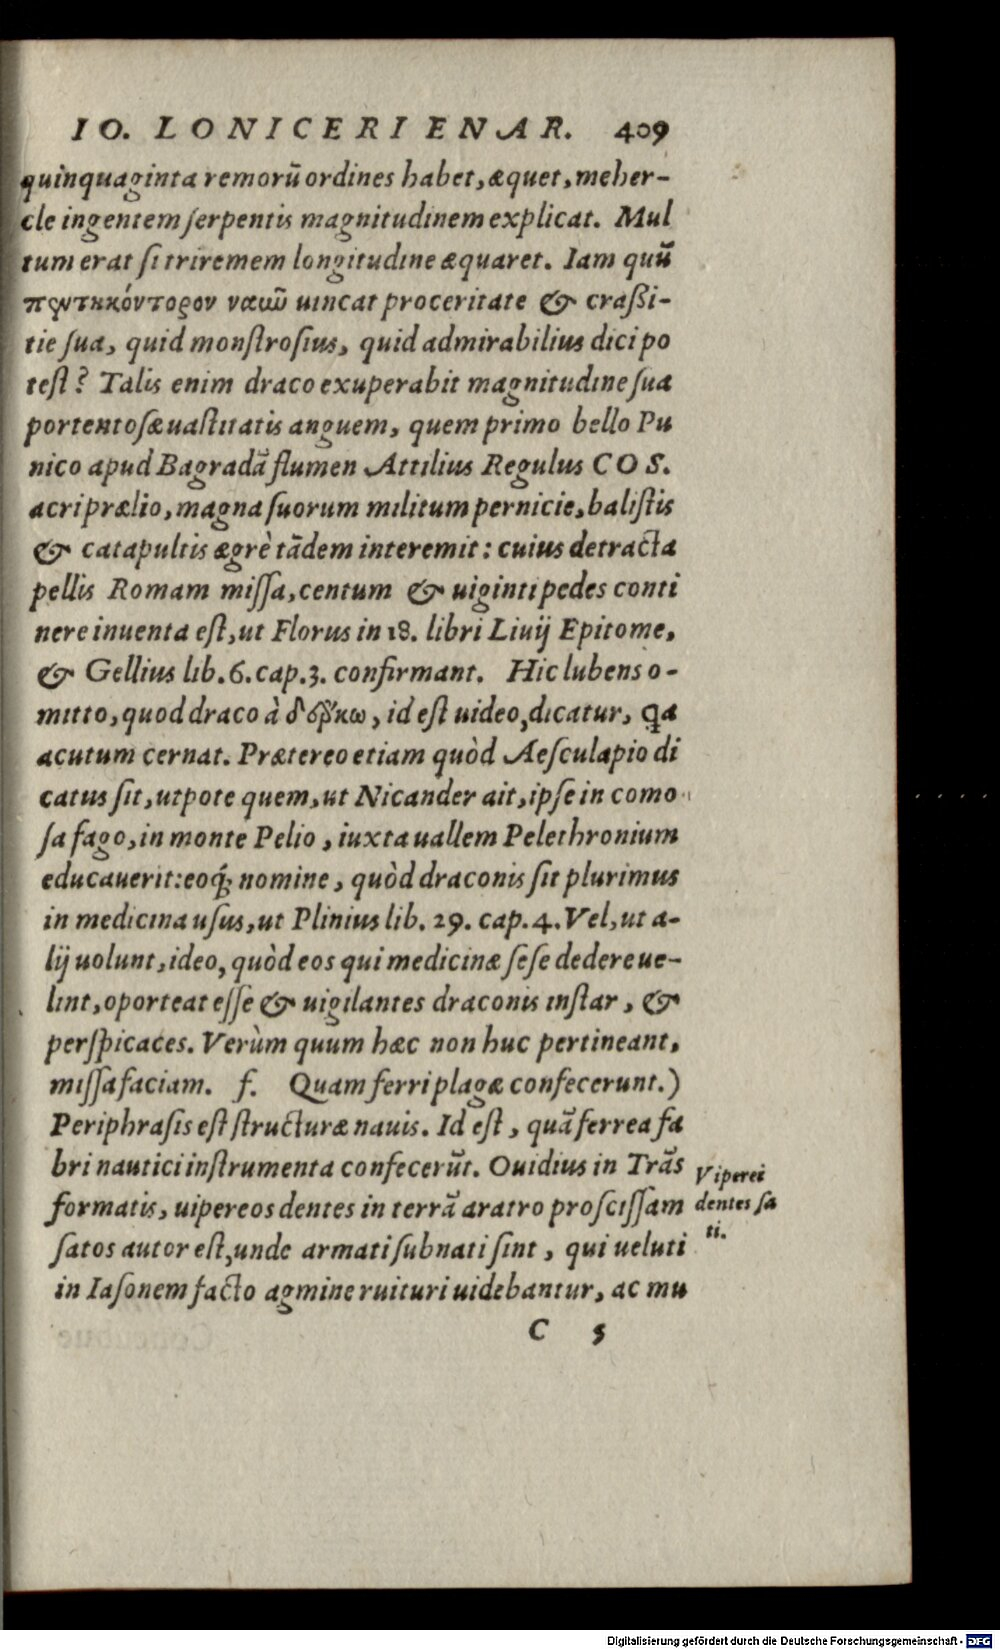 IO. LONICERI ENAR. 409
quinquaginta remorũ ordines habet, æquet, meher-
cle ingentem serpentis magnitudinem explicat. Mul
tum erat si triremem longitudine æquaret. Iam quũ
πεντηκόντορον ναῦν uincat proceritate & craßi-
tie sua, quid monstrosius, quid admirabilius dici po
test? Talis enim draco exuperabit magnitudine sua
portentosæ uastitatis anguem, quem primo bello Pu
nico apud Bagradã flumen Attilius Regulus COS.
acri prælio, magna suorum militum pernicie, balistis
& catapultis ægrè tãdem interemit: cuius detracta
pellis Romam missa, centum & uiginti pedes conti
nere inuenta est, ut Florus in 18. libri Liuij Epitome,
& Gellius lib. 6. cap. 3. confirmant. Hic lubens o-
mitto, quod draco à δέρκω, id est uideo, dicatur, ꝗa
acutum cernat. Prætereo etiam quòd Aesculapio di
catus sit, utpote quem, ut Nicander ait, ipse in como
sa fago, in monte Pelio, iuxta uallem Pelethronium
educauerit: eoq́; nomine, quòd draconis sit plurimus
in medicina usus, ut Plinius lib. 29. cap. 4. Vel, ut a-
lij uolunt, ideo, quòd eos qui medicinæ sese dedere ue-
lint, oporteat esse & uigilantes draconis instar, &
perspicaces. Verùm quum hæc non huc pertineant,
missa faciam. f. Quam ferri plagæ confecerunt.)
Periphrasis est structuræ nauis. Id est, quã ferrea fa
bri nautici instrumenta confecerũt. Ouidius in Trãs
formatis, uipereos dentes in terrã aratro proscissam
satos autor est, unde armati subnati sint, qui ueluti
in Iasonem facto agmine ruituri uidebantur, ac mu
Viperei
dentes sa
ti.
C 5
Digitalisierung gefördert durch die Deutsche Forschungsgemeinschaft - DFG